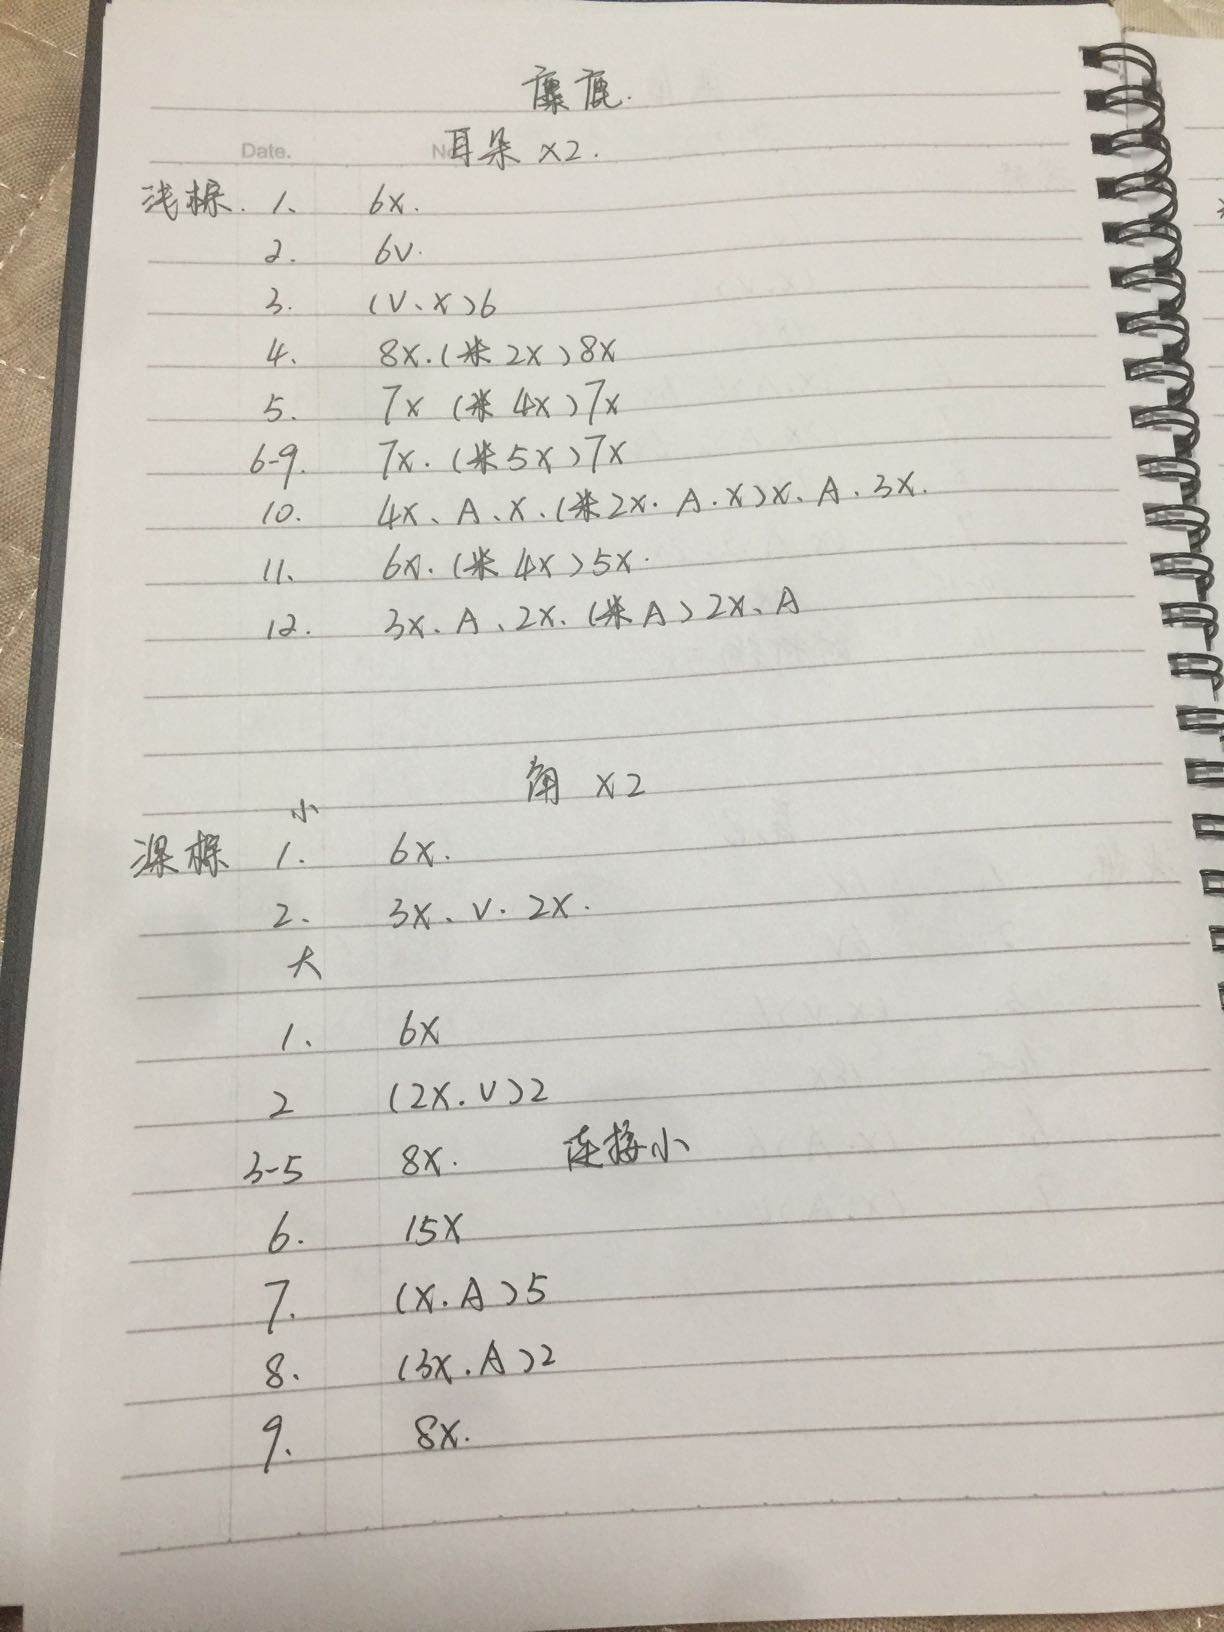 麋鹿.
Date. No 耳朵 ×2.
浅棕. 1、 6X.
2. 6V.
3. (V、X)6
4. 8X.(米 2X)8X
5. 7X (米 4X)7X
6-9. 7X.(米5X)7X
10. 4X、A、X、(米2X.A.X)X、A、3X.
11、 6X.(米 4X)5X.
12. 3X、A、2X、(米A)2X、A
角 X2
小
深棕 1. 6X.
2. 3X、V. 2X.
大
1、 6X
2 (2X.V)2
3-5 8X. 连接小
6. 15X
7. (X.A)5
8. (3X.A)2
9. 8X.